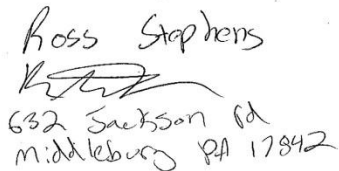 Ross Stephens
632 Jackson Rd
Middleburg PA 17842